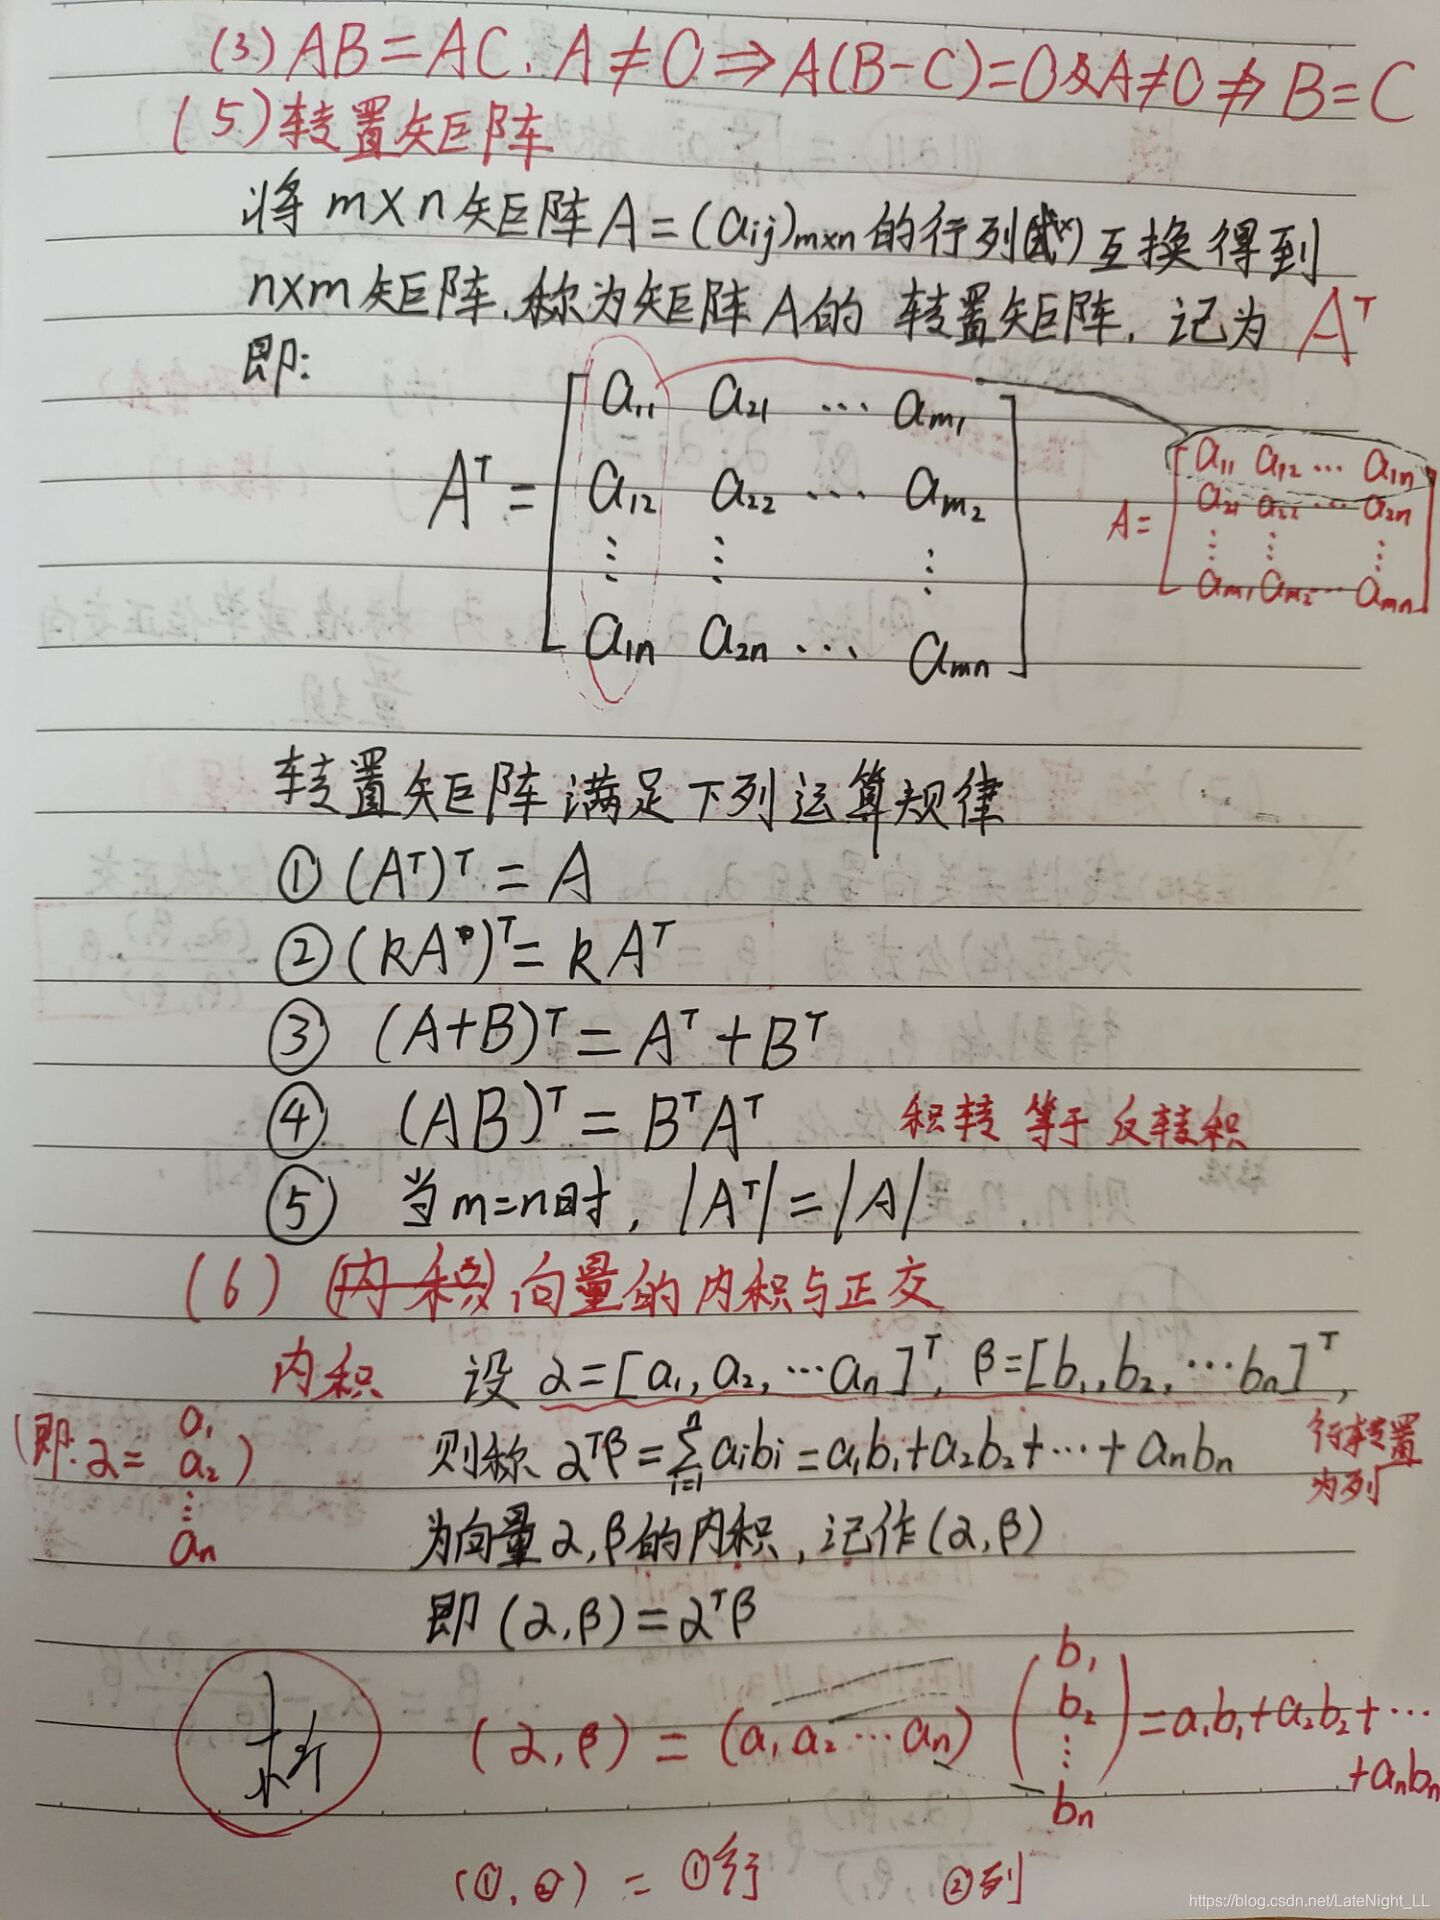 (3) AB=AC, A≠O⇒A(B-C)=O及A≠O⇏B=C
(5)转置矩阵
将m×n矩阵A=(aij)m×n的行列互换得到
n×m矩阵,称为矩阵A的 转置矩阵,记为 Aᵀ
即:
a₁₁ a₂₁ ··· aₘ₁
Aᵀ= a₁₂ a₂₂ ··· aₘ₂
⋮ ⋮ ⋮
a₁ₙ a₂ₙ ··· aₘₙ
a₁₁ a₁₂ ··· a₁ₙ
A= a₂₁ a₂₂ ··· a₂ₙ
⋮ ⋮ ⋮
aₘ₁ aₘ₂ ··· aₘₙ
转置矩阵满足下列运算规律
① (Aᵀ)ᵀ=A
② (kA)ᵀ=kAᵀ
③ (A+B)ᵀ=Aᵀ+Bᵀ
④ (AB)ᵀ=BᵀAᵀ 积转 等于 反转积
⑤ 当m=n时, |Aᵀ|=|A|
(6) (内积) 向量的内积与正交
内积 设 α=[a₁, a₂, ···aₙ]ᵀ, β=[b₁, b₂, ···bₙ]ᵀ,
则称 αᵀβ=∑ⁿᵢ₌₁aᵢbᵢ=a₁b₁+a₂b₂+···+aₙbₙ
行转置
为列
(即: α= a₁
a₂ )
⋮
aₙ
为向量α,β的内积,记作(α,β)
即 (α,β)=αᵀβ
析
(α,β)=(a₁ a₂ ··· aₙ) (b₁
b₂
⋮
bₙ) =a₁b₁+a₂b₂+···
+aₙbₙ
(①,②) = ①行 ②列
https://blog.csdn.net/LateNight_LL